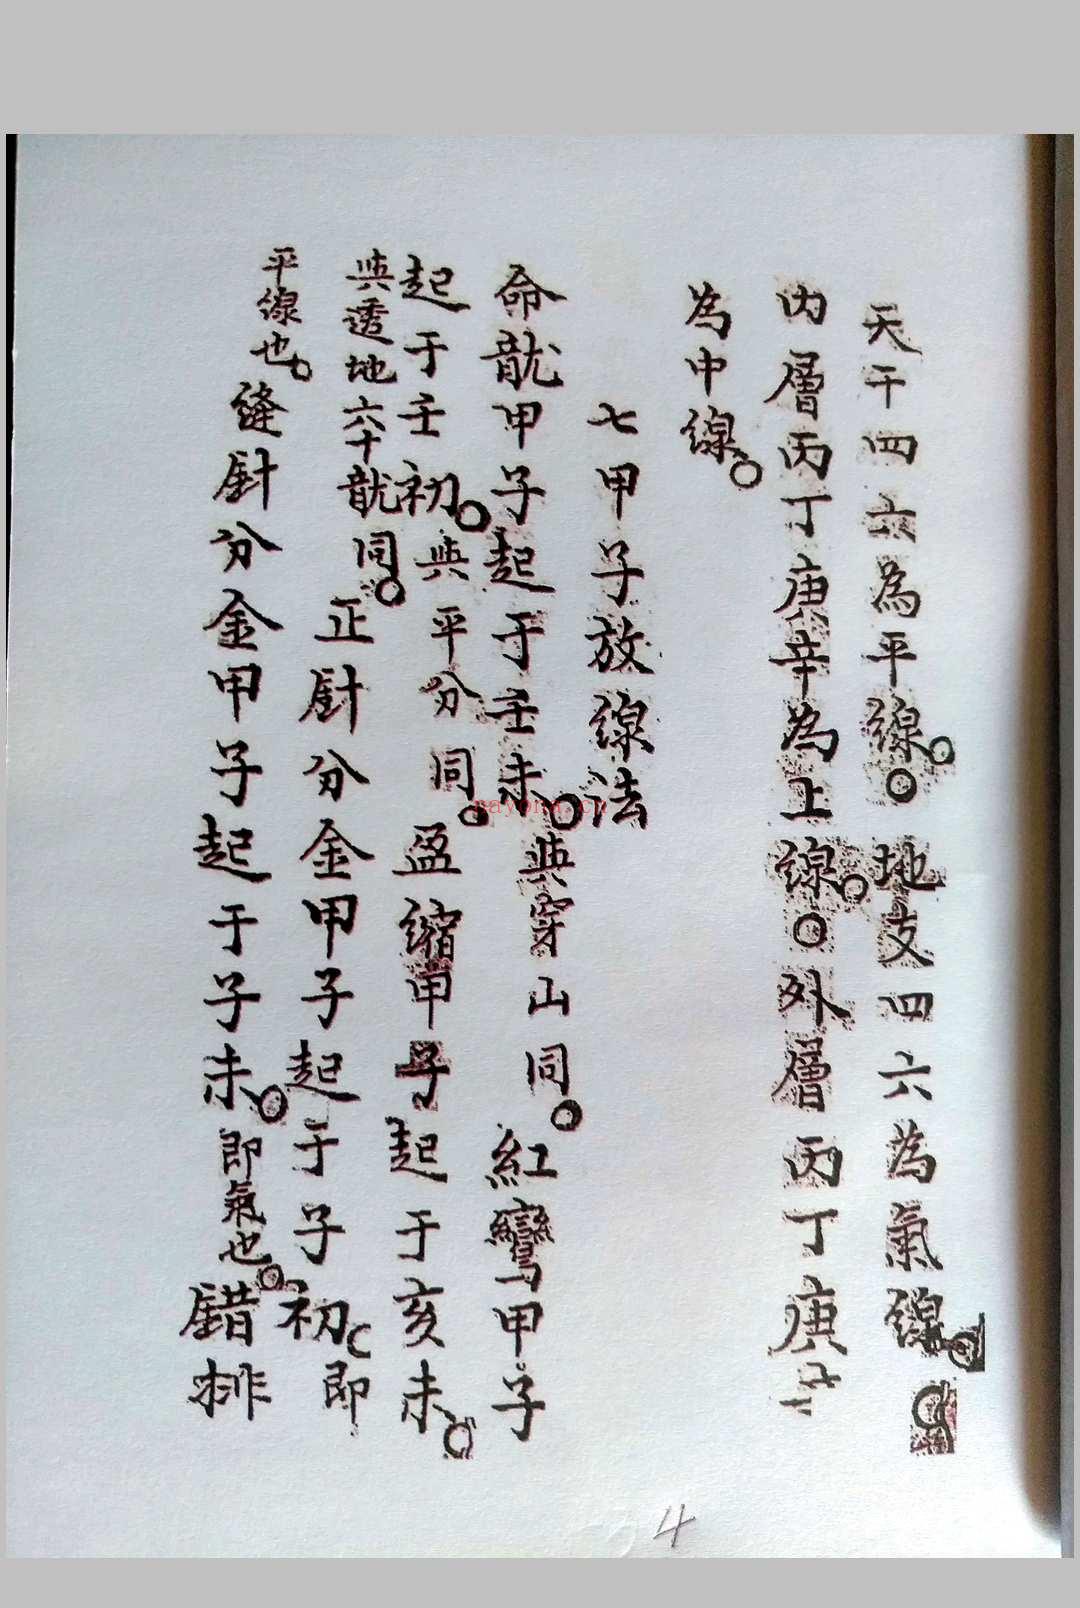 天干四六為平線。○地支四六為氣線。○
內層丙丁庚辛為上線。○外層丙丁庚辛
為中線。
七甲子放線法
命龍甲子起于壬未。與穿山同。紅鸞甲子
起于壬初。與平分同。盈縮甲子起于亥未。
與透地六十龍同。正針分金甲子起于子初。即
平線也。縫針分金甲子起于子未。即氣也。錯排
nayona.cn
4